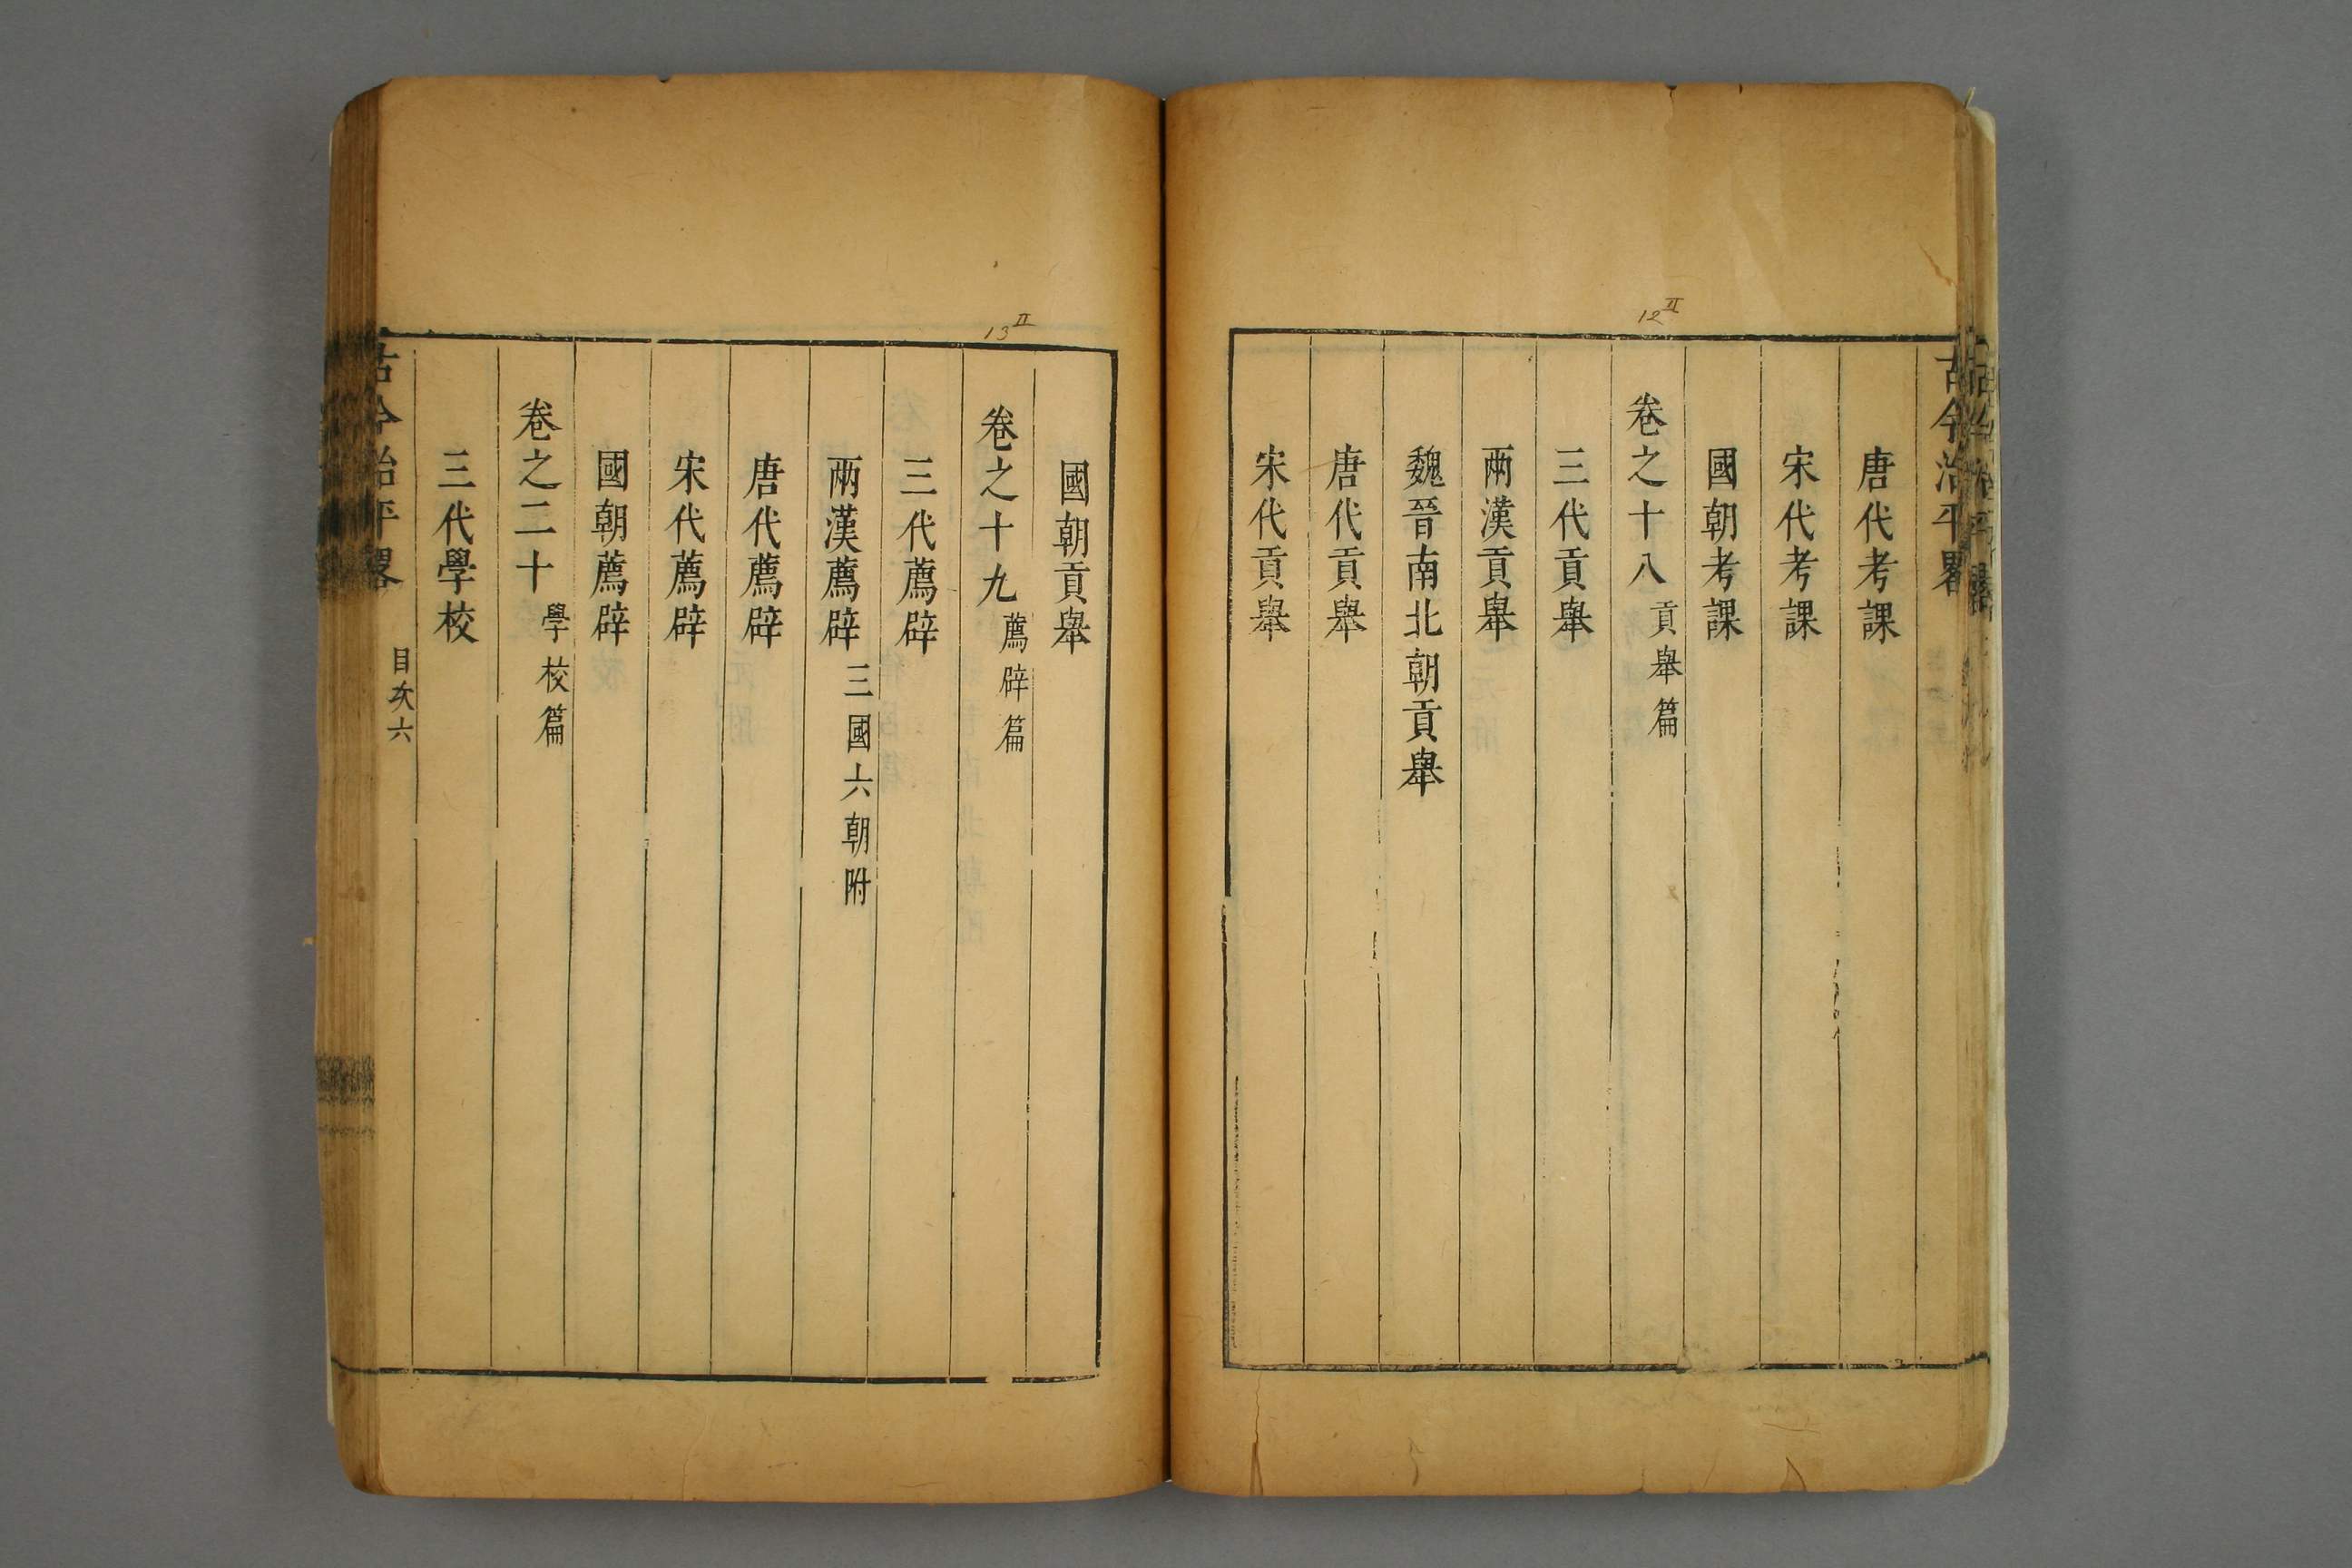 古今治平畧
唐代考課
宋代考課
國朝考課
12 II
卷之十八 貢舉篇
三代貢舉
兩漢貢舉
魏晉南北朝貢舉
唐代貢舉
宋代貢舉
國朝貢舉
13 II
卷之十九 薦辟篇
三代薦辟
兩漢薦辟 三國六朝附
唐代薦辟
宋代薦辟
國朝薦辟
卷之二十 學校篇
三代學校
古今治平畧 目次六